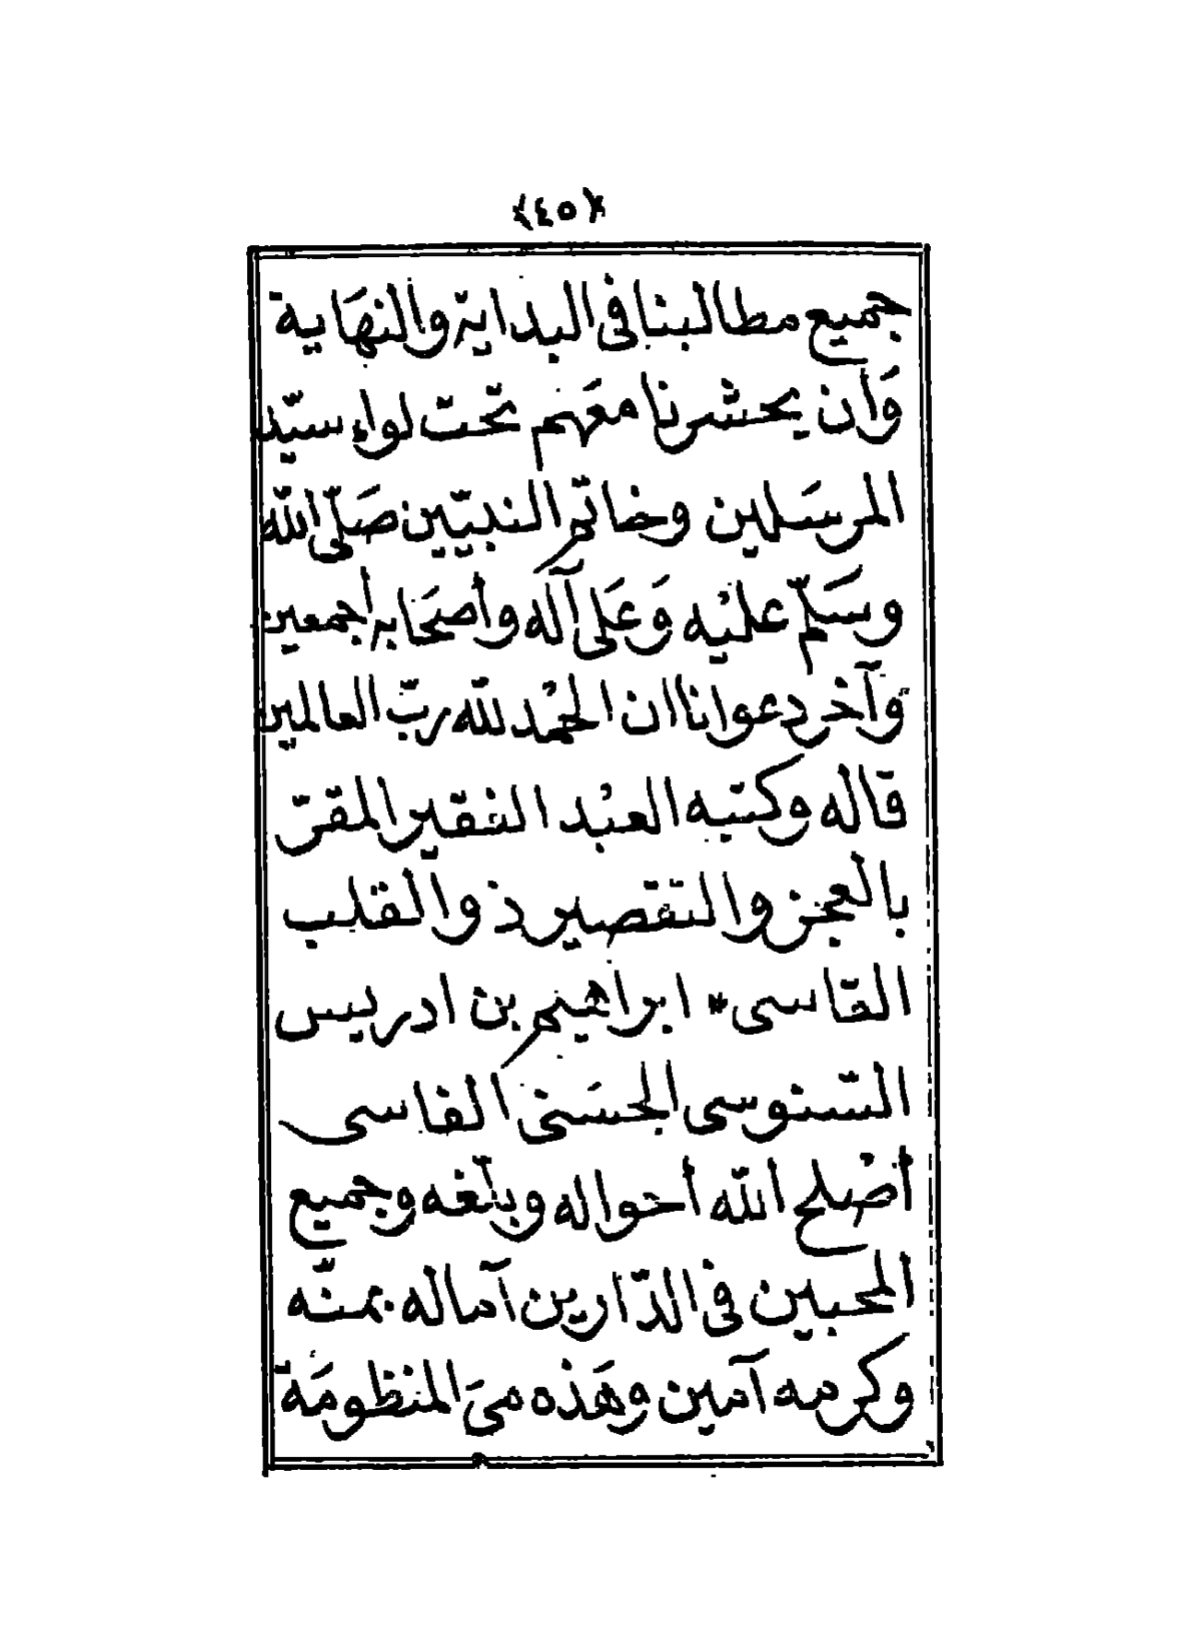 ﴿٤٥﴾
جميع مطالبنا فى البداية والنهَاية
وَأن يحشرنا معَهم تحت لواء سيّد
المرسَلين وخاتم النبيّين صَلّى الله
وسَلّم عليْه وَعَلى آله وأصحَابه أجمعين
وآخر دعوانا ان الحمْد لله ربّ العالمين
قاله وكتبه العبْد الفقير المقرّ
بالعجز والتقصير ذو القلب
القاسى * ابراهيم بن ادريس
السّنوسى الحسَنى الفاسى
أصْلح الله أحواله وبلّغه وجميع
المحبين فى الدّارين آماله بمنّه
وكرمه آمين وهَذه هىَ المنظومَة